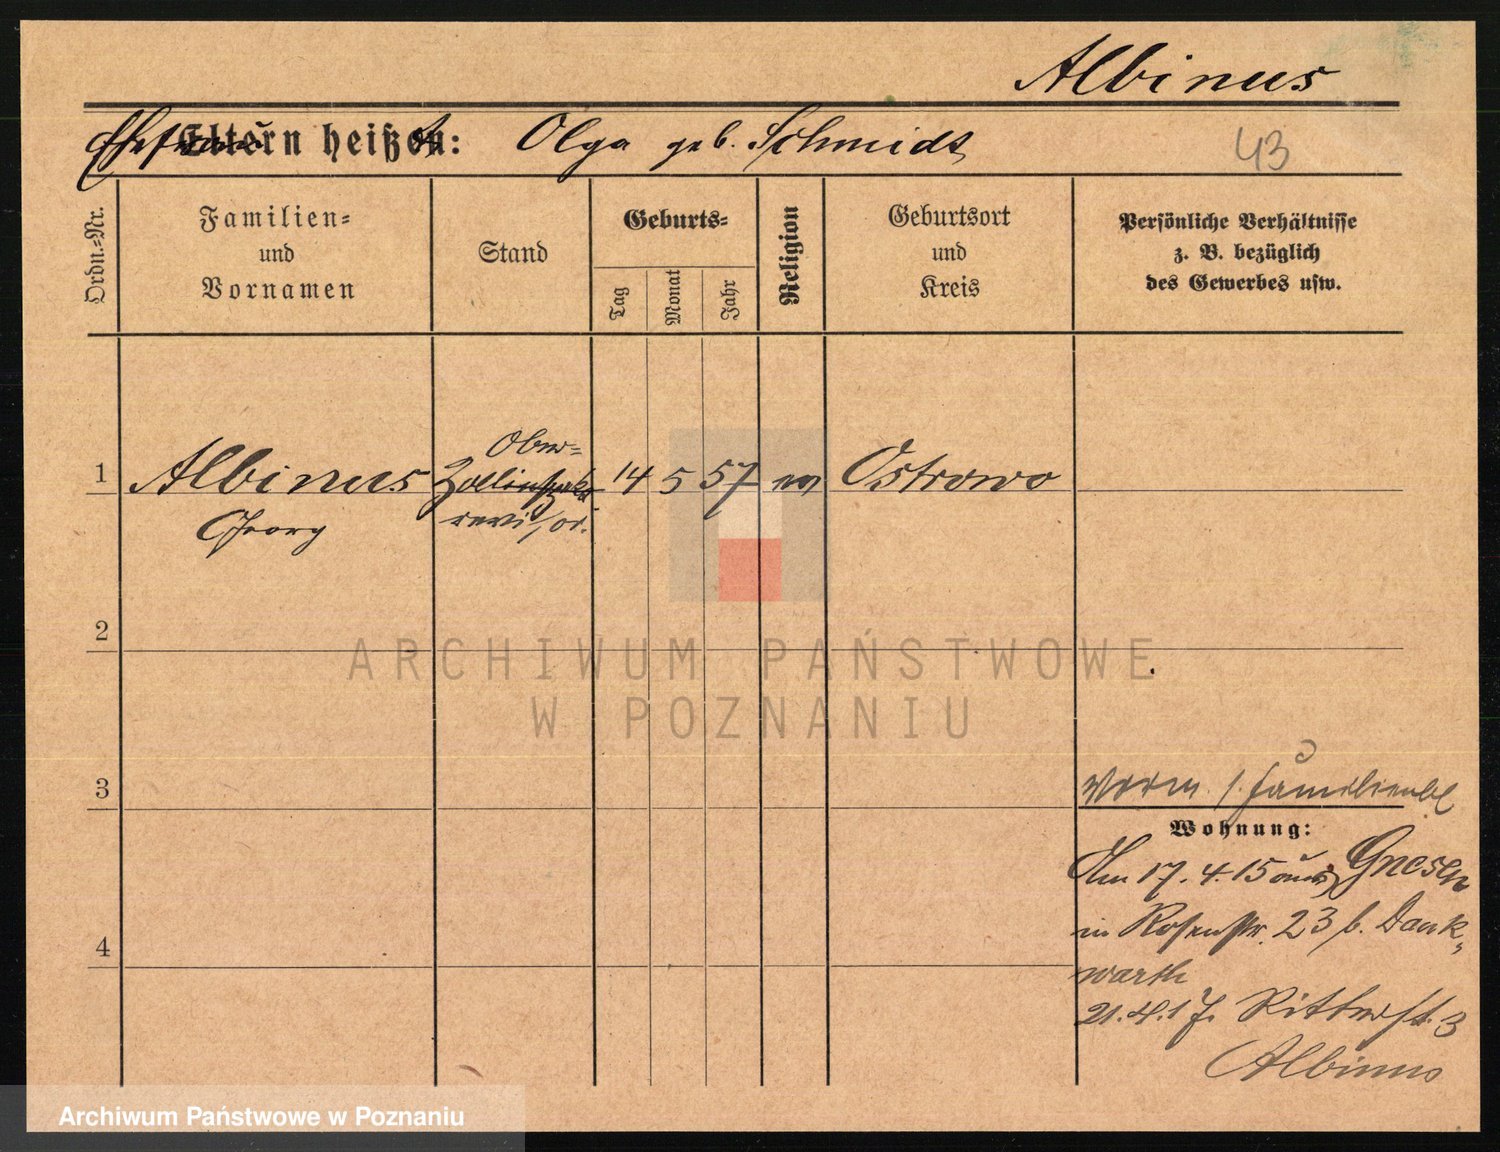 Albinus
Eltern heißen: Olga geb. Schmidt
43
Ordn.-Nr.
Familien-
und
Vornamen
Stand
Geburts-
Tag
Monat
Jahr
Religion
Geburtsort
und
Kreis
Persönliche Verhältnisse
z. B. bezüglich
des Gewerbes usw.
Ober-
1 Albinus 14 5 57 ev Ostrowo
Georg revisor.
2
ARCHIWUM PAŃSTWOWE
W POZNANIU
3
Verm. s. Familienbl
Wohnung:
Am 17. 4. 15 aus Gnesen
in Rosenstr. 23 b. Dank-
warth
4
21. 4. 17. Ritterst. 3
Albinus
Archiwum Państwowe w Poznaniu